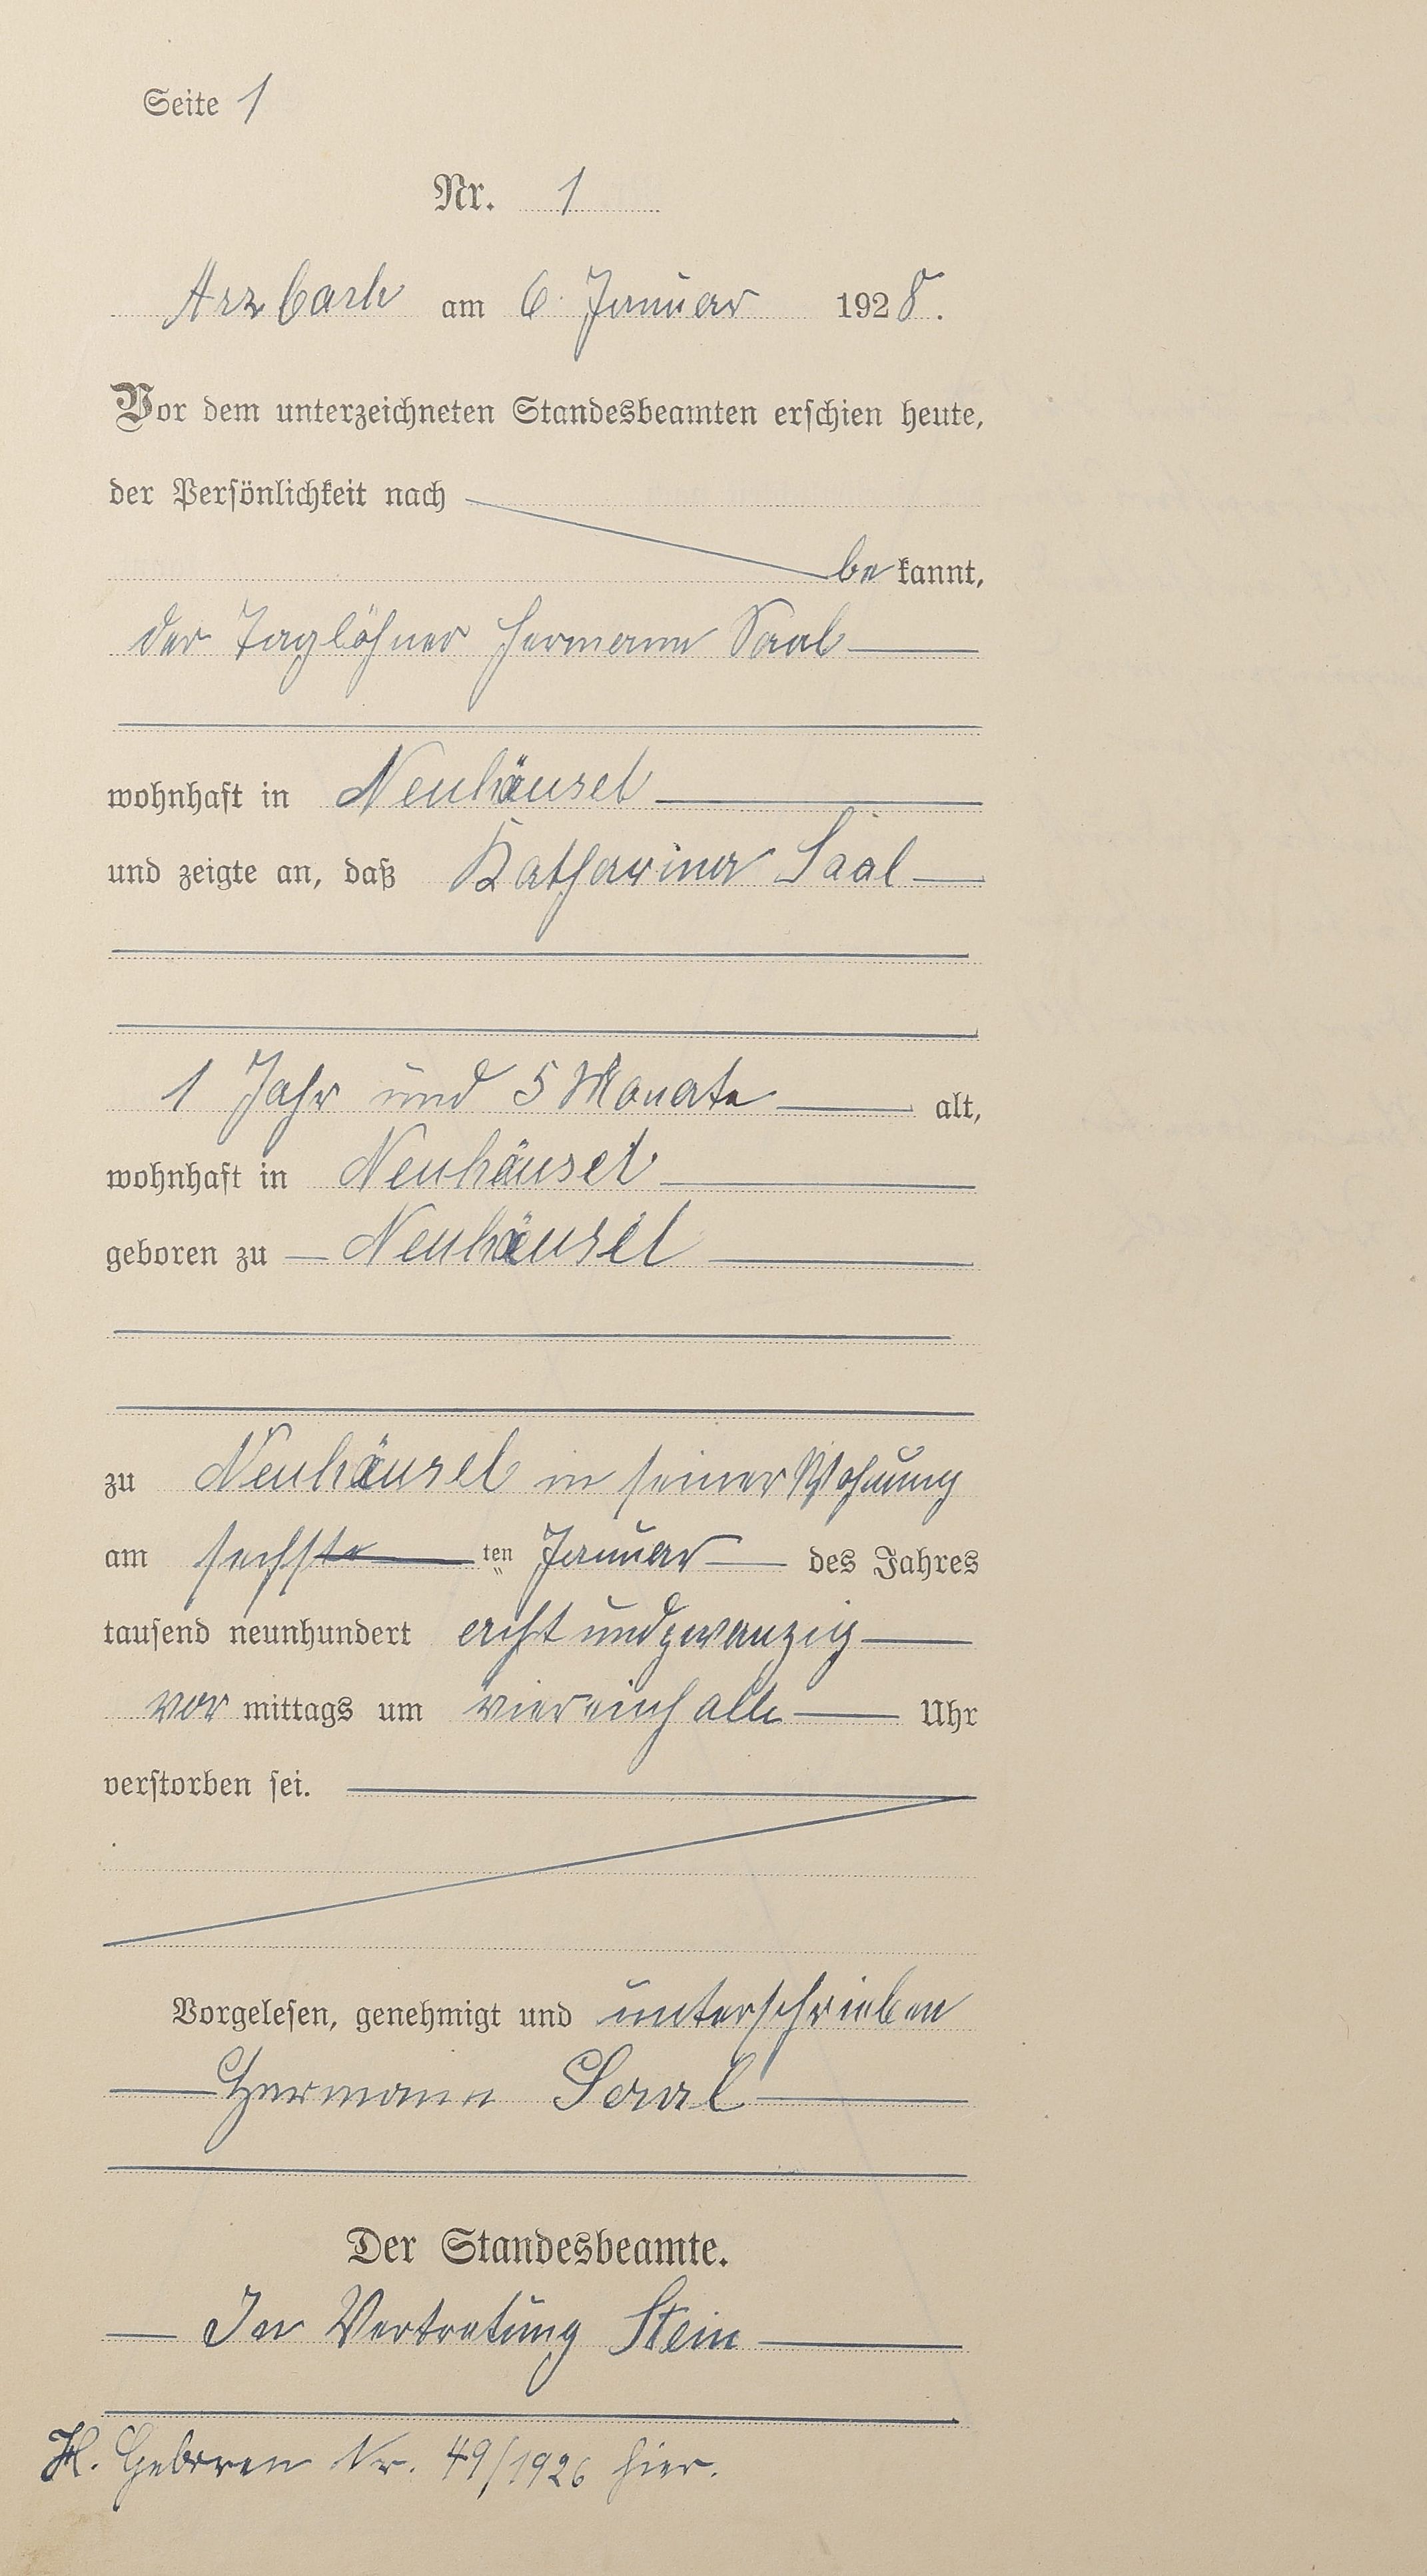 Seite 1
Nr. 1
Arzbach am 6. Januar 1928.
Vor dem unterzeichneten Standesbeamten erschien heute,
der Persönlichkeit nach
be kannt,
der Taglöhner Hermann Saal
wohnhaft in Neuhäusel
und zeigte an, daß Katharina Saal
1 Jahr und 5 Monate alt,
wohnhaft in Neuhäusel
geboren zu Neuhäusel
zu Neuhäusel in seiner Wohnung
am sechste ten Januar des Jahres
tausend neunhundert acht undzwanzig
vor mittags um viereinhalb Uhr
verstorben sei.
Vorgelesen, genehmigt und unterschrieben
Hermann Saal
Der Standesbeamte.
In Vertretung Stein
Geboren Nr. 49/1926 hier.